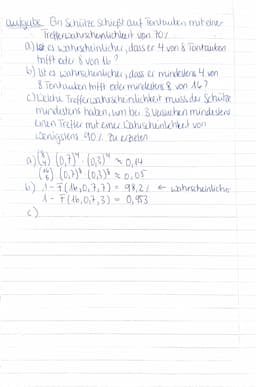 Aufgabe Ein Schütze schießt auf Tontauben mit einer
Trefferwahrscheinlichkeit von 70%
a) Ist es wahrscheinlicher, dass er 4 von 8 Tontauben
trifft oder 8 von 16?
b) Ist es wahrscheinlicher, dass er mindestens 4 von
8 Tontauben trifft oder mindestens 8 von 16?
c) Welche Trefferwahrscheinlichkeit muss der Schütze
mindestens haben, um bei 3 Versuchen mindestens
einen Treffer mit einer Wahrscheinlichkeit von
wenigstens 90% zu erzielen
a) (8 4) (0,7)⁴ · (0,3)⁴ ≈ 0,14
(16 8) (0,7)⁸ · (0,3)⁸ ≈ 0,05
b) 1 - F(16, 0,7, 7) = 98,2% ← wahrscheinlicher
1 - F(16, 0,7, 3) = 0,953
c)